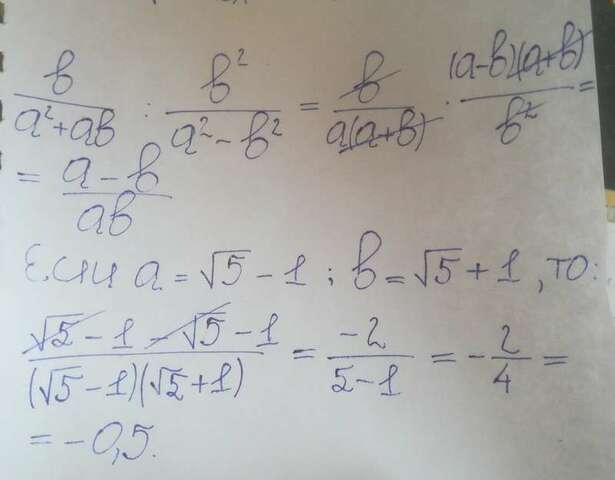 b/(a²+ab) : b²/(a²-b²) = b/(a(a+b)) · (a-b)(a+b)/b² =
= (a-b)/(ab)
Если a = √5 - 1 ; b = √5 + 1 , то:
(√5 - 1 - √5 - 1)/((√5 - 1)(√5 + 1)) = -2/(5-1) = -2/4 =
= -0,5.